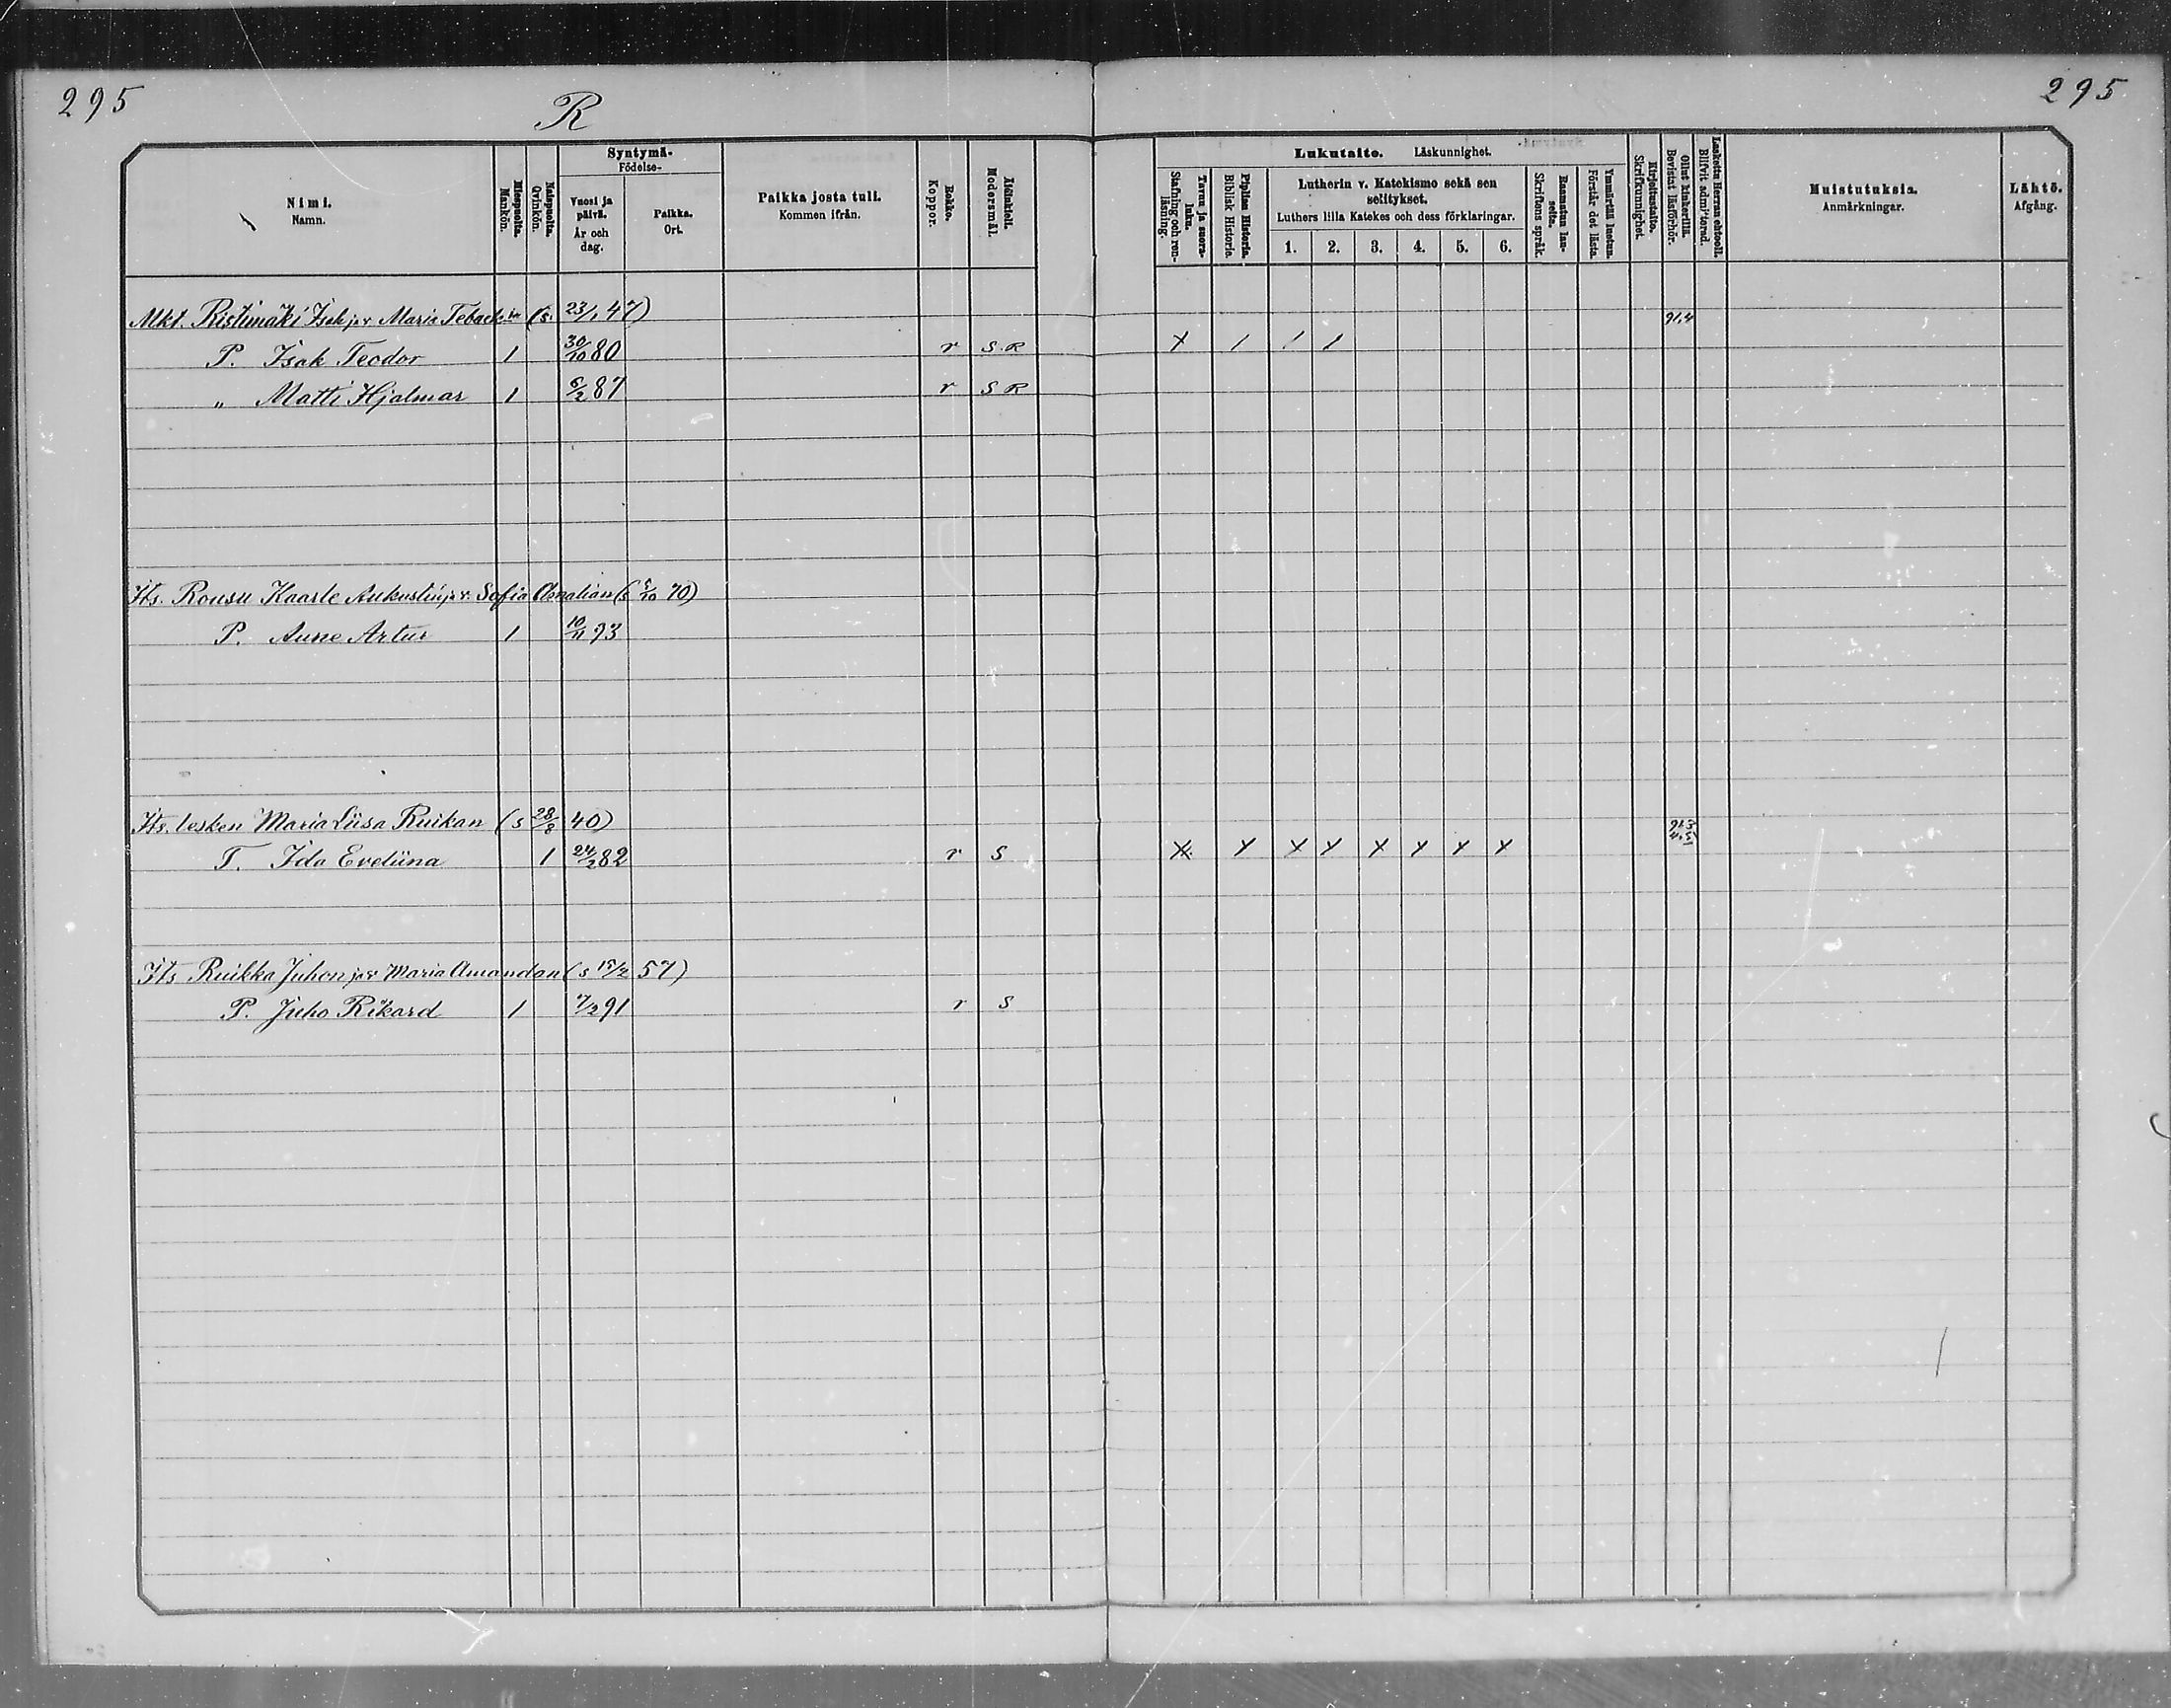 295
R
295
Nimi.
Namn.
Miespuolia.
Mankön.
Naispuolia.
Qvinkön.
Syntymä-
Födelse-
Vuosi ja päivä.
År och dag.
Paikka.
Ort.
Paikka josta tuli.
Kommen ifrån.
Rokko.
Koppor.
Äidinkieli.
Modersmål.
Lukutaito. Läskunnighet.
Tavuu ja suora-luku.
Stafning och ren-läsning.
Piplian Historia.
Biblisk Historie.
Lutherin v. Katekismo sekä sen
selitykset.
Luthers lilla Katekes och dess förklaringar.
1. 2. 3. 4. 5. 6.
Raamatun lau-seita.
Skriftens språk.
Ymmärtää luetun.
Förstår det lästa.
Kirjoitustaito.
Skrifkunnighet.
Ollut kinkerillä.
Bevistat läsförhör.
Laskettu Herran ehtooll.
Blifvit admi'terad.
Muistutuksia.
Anmärkningar.
Lähtö.
Afgång.
Mkt. Ristimäki Isak ja v. Maria (s. 23/1 47) 91,4
P. Isak Teodor 1 30/10 80 r S R X / / /
" Matti Hjalmar 1 6/2 87 r S R
Its. Rousu Kaarle Aukustin ja v. Sofia Amalian (s 5/10 70)
P. Aune Artur 1 10/11 93
Its. lesken Maria Liisa Ruikan (s 28/8 40)
T. Ida Eveliina 1 24/2 82 r S X Y X Y X Y Y Y
Its Ruikka Juhon ja v Maria Amandan (s 15/2 57)
P. Juho Rikard 1 7/2 91 r S